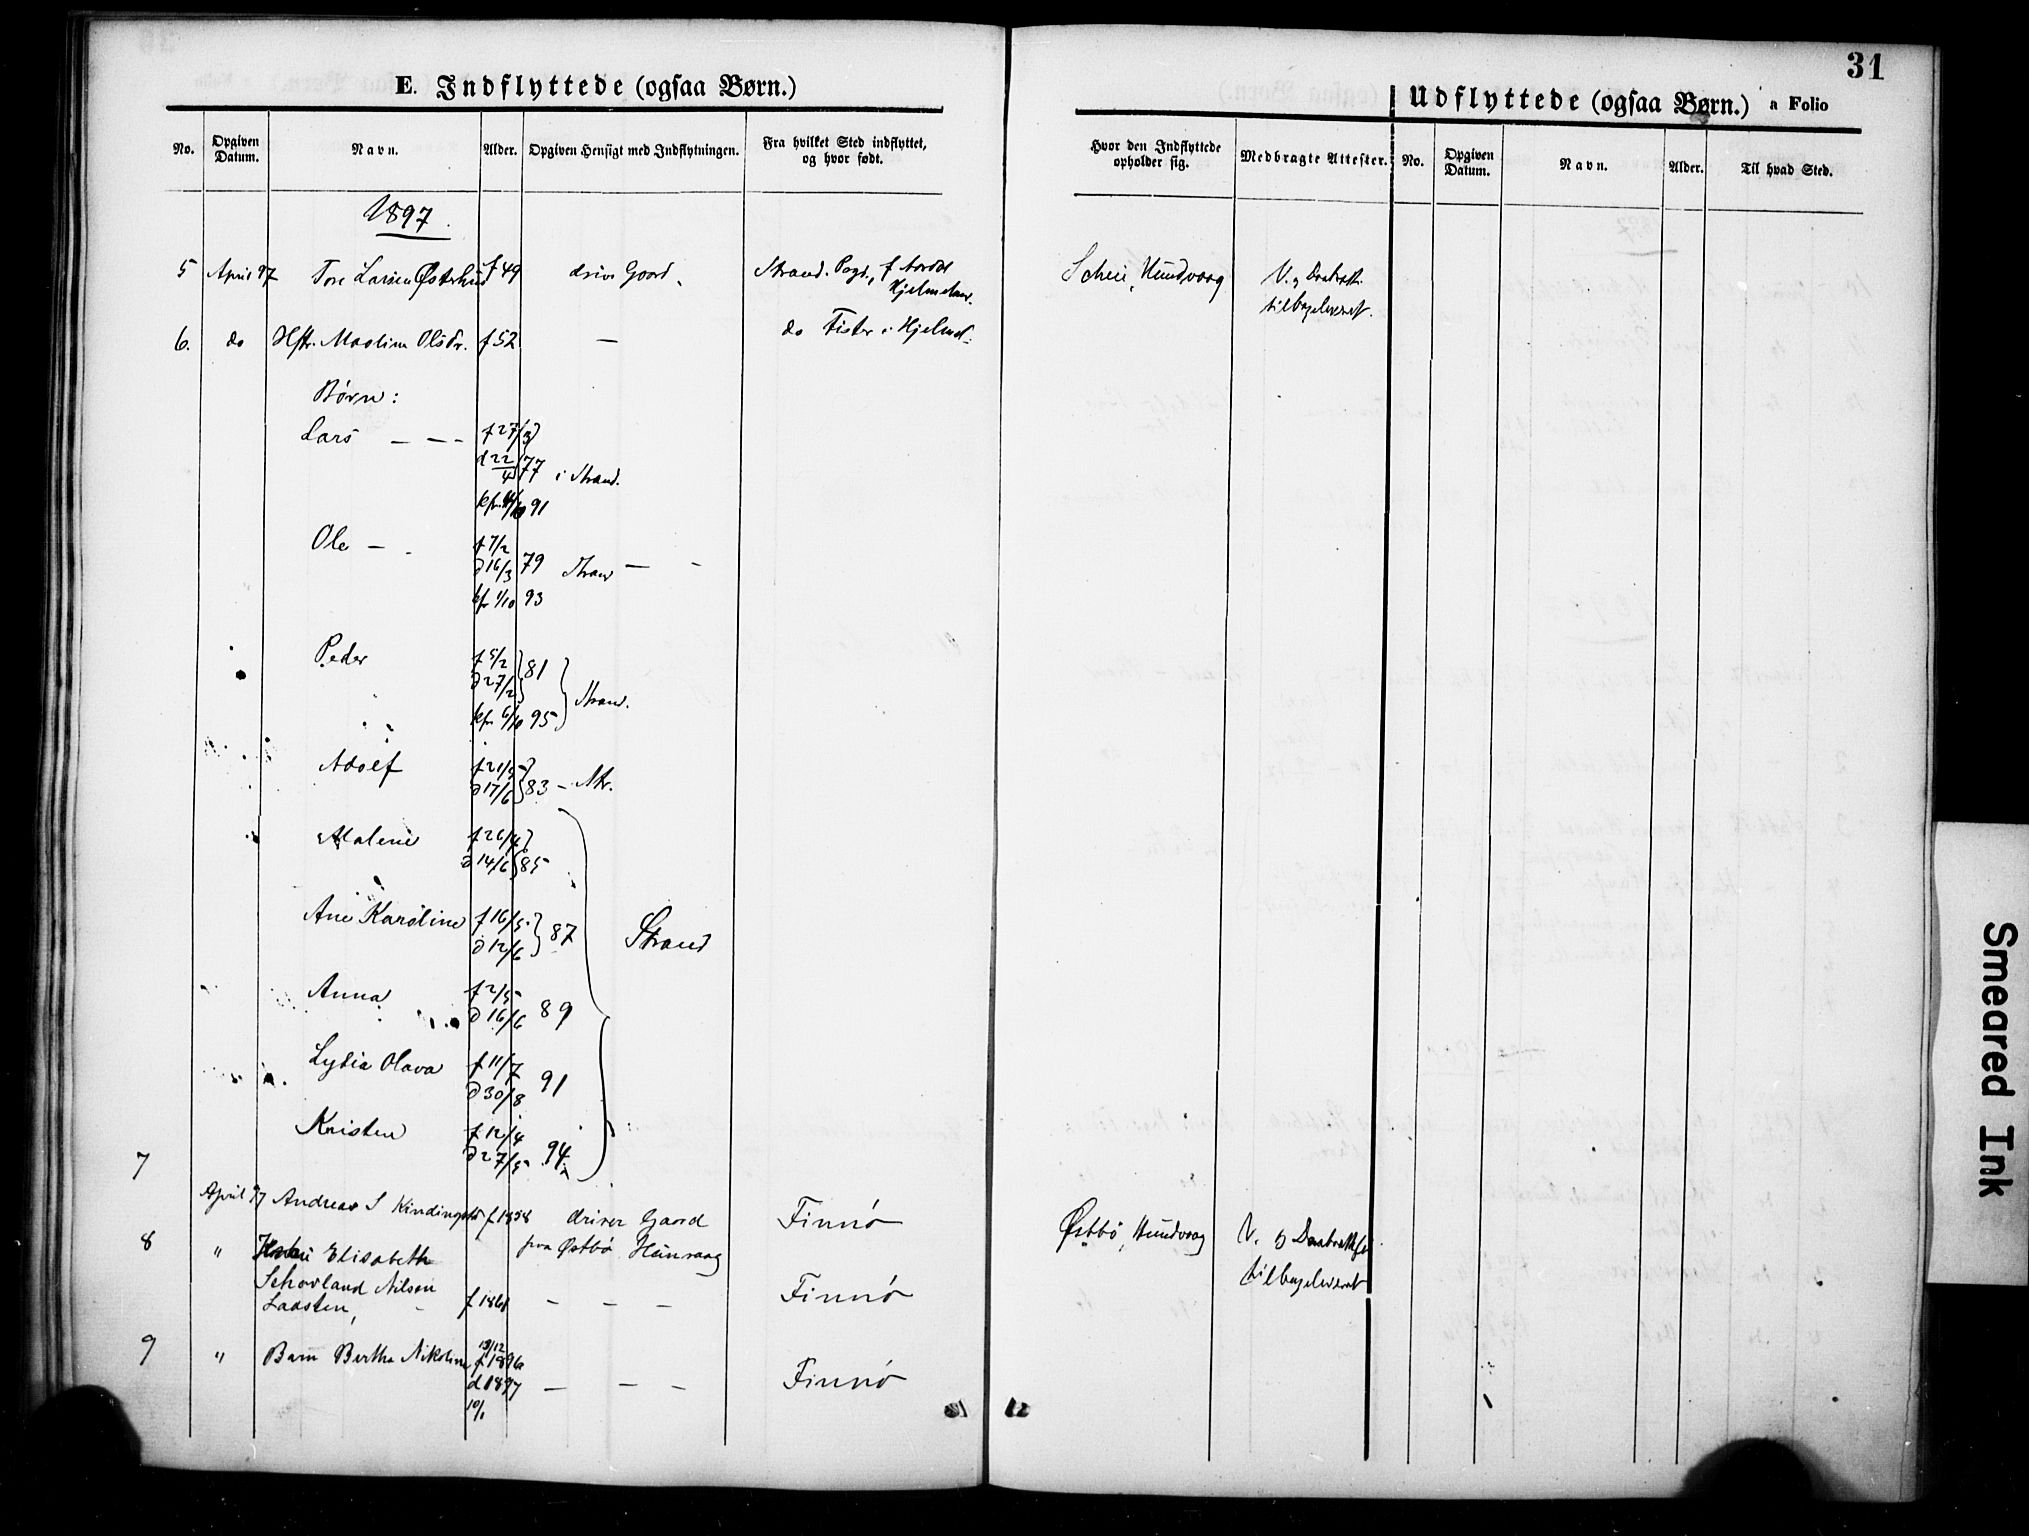 31
E. Indflyttede (ogsaa Børn.)
Udflyttede (ogsaa Børn.) a Folio
No. Opgiven Datum. Navn. Alder. Opgiven Hensigt med Indflytningen. Fra hvilket Sted indflyttet, og hvor født.
Hvor den Indflyttede opholder sig. Medbragte Attester. No. Opgiven Datum. Navn. Alder. Til hvad Sted.
1897.
5 April 97 Tore Larsen f 49 Strand. f Scheie, Hundvaag V. og
Hjelmeland. tilbageleveret.
6. do Hstr. Olsdr. f 52 — do Fister i Hjelmel.
Børn:
Lars — — - f 27/3
d 22/4 77 i Strand.
kfr. 91
Ole — - f 7/2
d 16/3 79 Strand — -
kfr 1/10 93
Peder f 5/2
d 27/2 81
kfr 6/10 95 Strand.
Adolf f 21/5
d 17/6 83 – Str.
Malene f 26/4
d 14/6 85
Ane Karoline f 16/5
d 12/6 87 Strand
Anna f 2/5
d 16/6 89
Lydia Olava f 11/7
d 30/8 91
Kristen f 12/4
d 27/5 94
7 April 97 Andreas S f 1858 driver Gaard Finnø Østbø, Hundvaag V. og
8 " Elisabeth paa Østbø Hunvaag tilbageleveret
Schovland Nilsen
f 1861 — — — Finnø
9 " Barn Bertha Nikoline 13/12
f 1896
d 1897 — — — Finnø
10/1
Smeared Ink